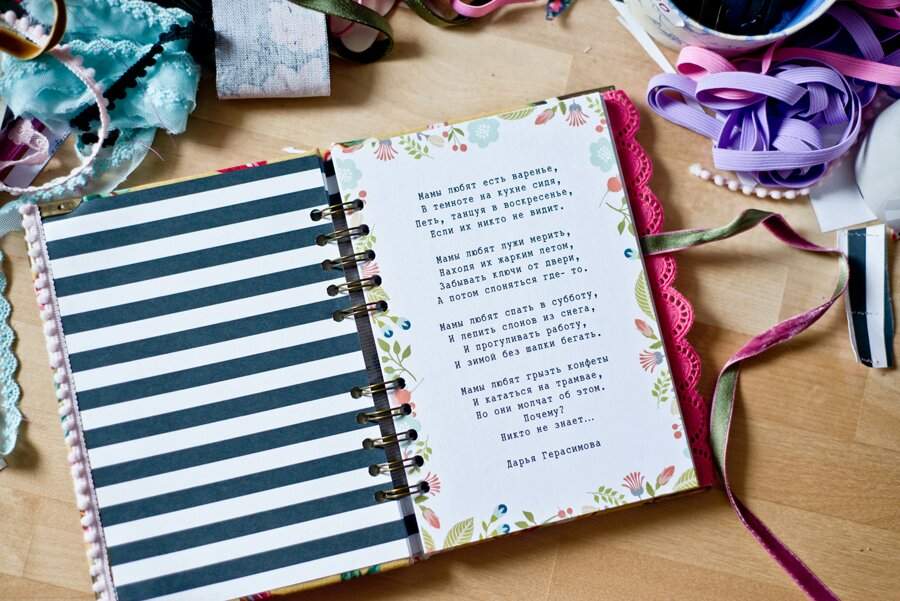 Мамы любят есть варенье,
В темноте на кухне сидя,
Петь, танцуя в воскресенье,
Если их никто не видит.
Мамы любят лужи мерить,
Находя их жарким летом,
Забывать ключи от двери,
А потом слоняться где- то.
Мамы любят спать в субботу,
И лепить слонов из снега,
И прогуливать работу,
И зимой без шапки бегать.
Мамы любят грызть конфеты
И кататься на трамвае,
Но они молчат об этом.
Почему?
Никто не знает...
Дарья Герасимова